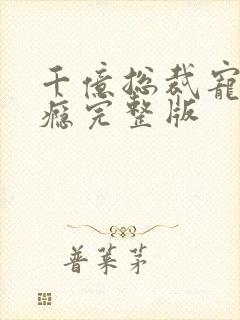 千億总裁寵
瘾完整版
普莱茅